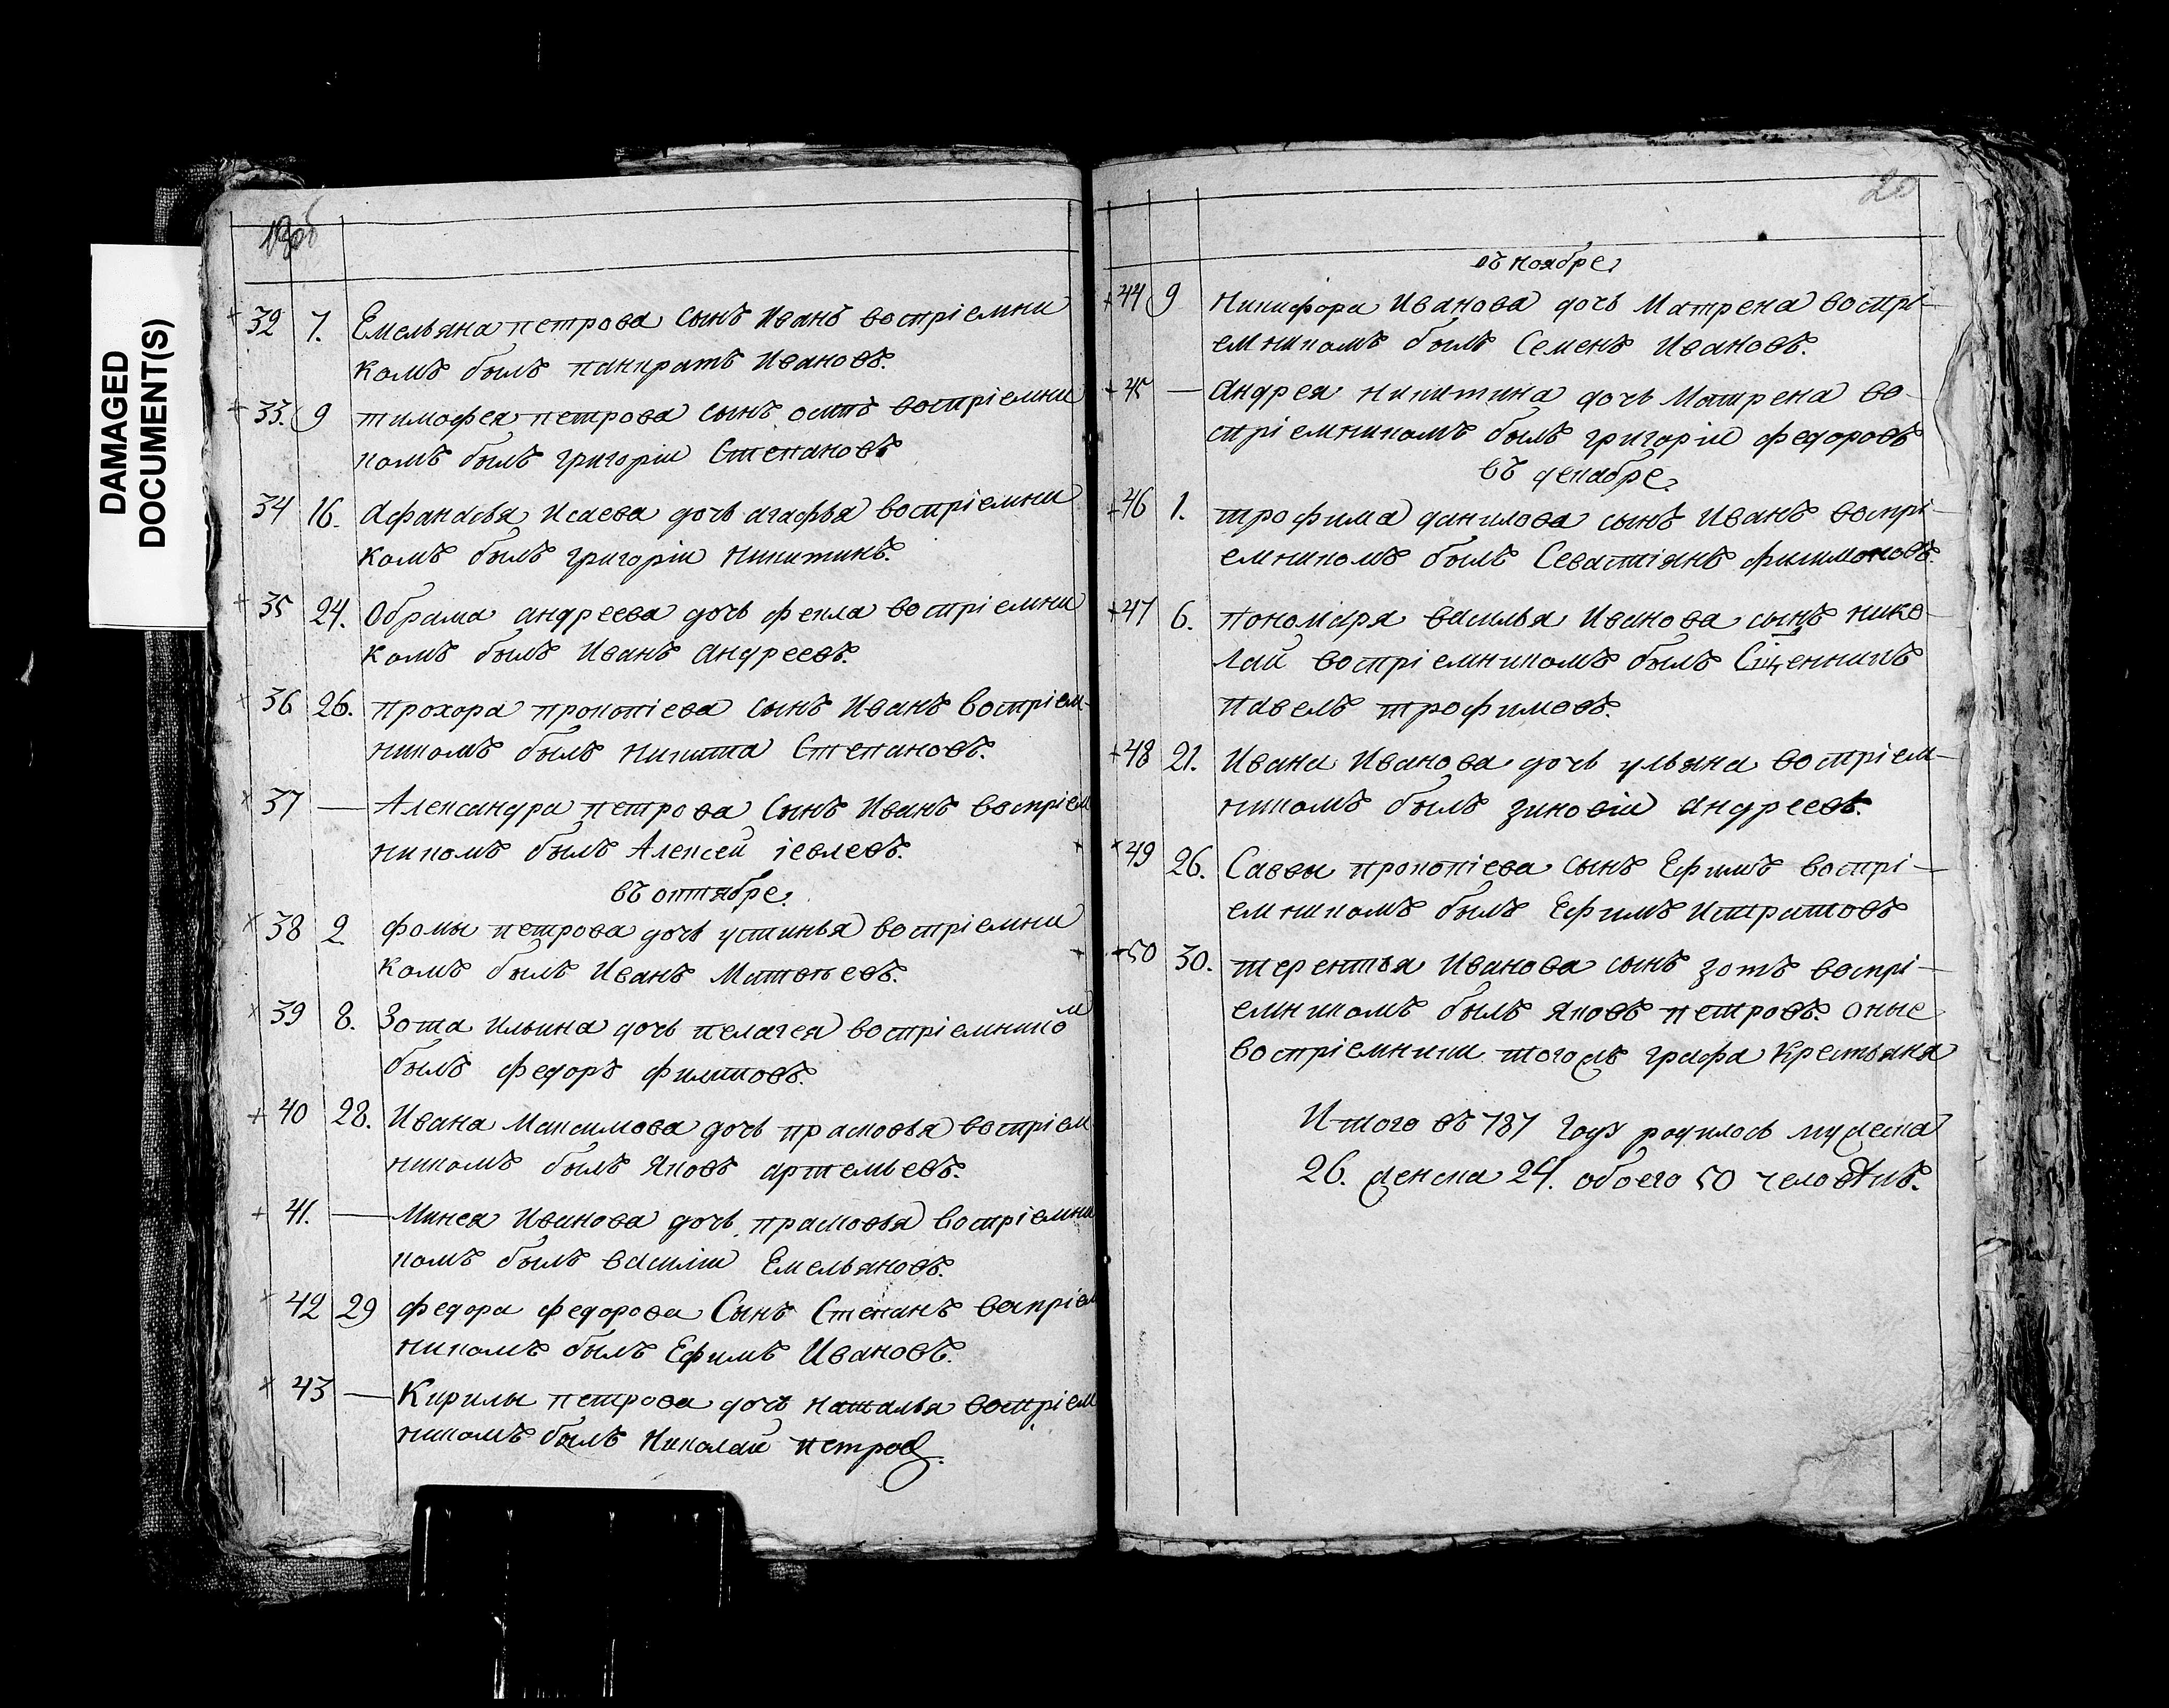 DAMAGED
DOCUMENT(S)
+ 32 7. Емельяна петрова сынъ Иванъ воспріемни
комъ былъ панкратъ Ивановъ.
+ 33. 9 тимофея петрова сынъ осипъ воспріемни
комъ былъ григоріи Степановъ
34 16. Афанасья Исаева дочь агафья воспріемни
комъ былъ григоріи Никитинъ.
+ 35 24. Обрама андреева дочь фекла воспріемни
комъ былъ Иванъ Андреевъ.
+ 36 26. прохора прокопіева сынъ Иванъ воспріем-
никомъ былъ Никита Степановъ.
× 37 — Александра петрова Сынъ Иванъ воспріем
никомъ былъ Алексей іевлевъ.
въ октябре.
× 38 2 фомы петрова дочь устинья воспріемни
комъ былъ Иванъ Матвеевъ.
× 39 8. Зота Ильина дочь пелагея воспріемником
былъ федоръ филиповъ.
+ 40 28. Ивана Максимова дочь прасковья воспріем
никомъ былъ Яковъ артемьевъ.
+ 41. — Минея Иванова дочь прасковья воспріемни
комъ былъ василіи Емельяновъ.
× 42 29 федора федорова Сынъ Степанъ воспріем
никомъ былъ Ефимъ Ивановъ.
× 43 — Кирилы петрова дочь наталья воспріем
никомъ былъ Николаи петровъ.
20
въ ноябре
+ 44 9 Никифора Иванова дочь Матрена воспрі-
емникомъ былъ Семенъ Ивановъ.
+ 45 — Андрея никитина дочь Матрена во-
спріемникомъ былъ григоріи федоровъ
въ декабре.
+ 46 1. трофима данилова сынъ Иванъ воспрі-
емникомъ былъ Севастіянъ филимоновъ.
+ 47 6. пономаря василья Иванова сынъ нико-
лаи воспріемникомъ былъ Сщенникъ
павелъ трофимовъ.
+ 48 21. Ивана Иванова дочь ульяна воспріем-
никомъ былъ зиновіи андреевъ.
× 49 26. Саввы прокопіева сынъ Ефимъ воспрі-
емникомъ былъ Ефимъ Истратовъ
+ 50 30. терентья Иванова сынъ зотъ воспрі-
емникомъ былъ яковъ петровъ. оные
воспріемники тогожъ графа Крестьяня
Итого въ 787 году родилось мужеска
26. женска 24. обоего 50 человѣкъ.